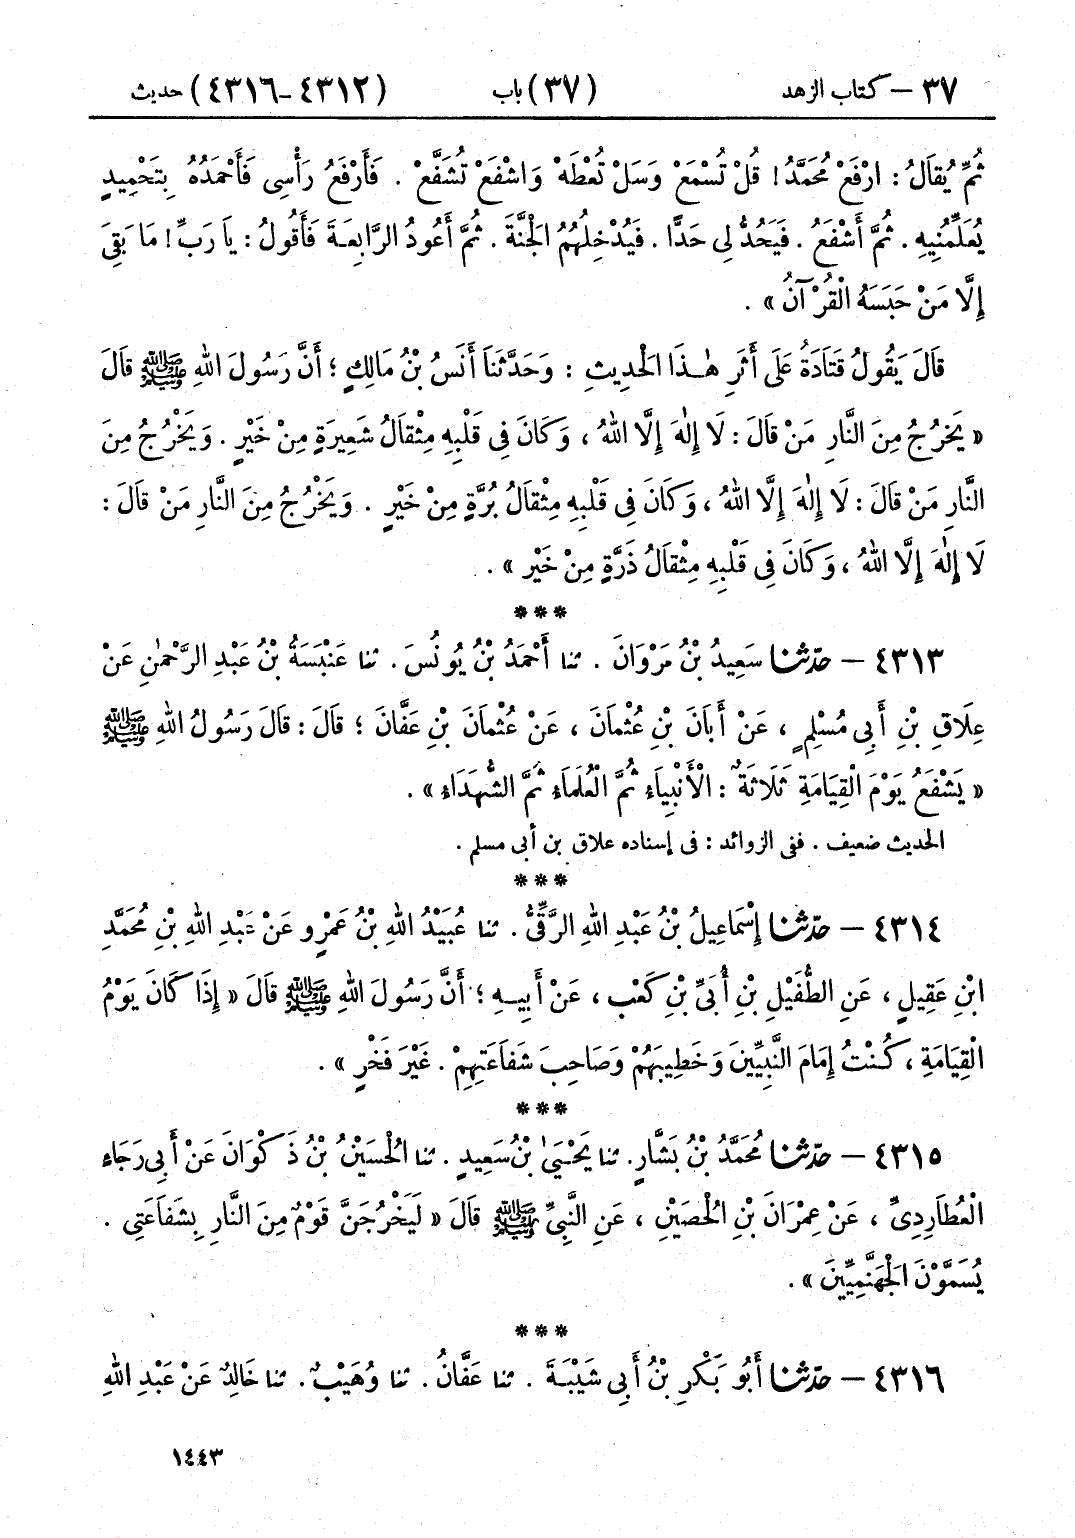 ٣٧ – كتاب الزهد (٣٧) باب (٤٣١٢–٤٣١٦) حديث
ثُمَّ يُقَالُ : ارْفَعْ مُحَمَّدُ! قُلْ تُسْمَعْ وَسَلْ تُعْطَهْ وَاشْفَعْ تُشَفَّعْ . فَأَرْفَعُ رَأْسِى فَأَحْمَدُهُ بِتَحْمِيدٍ
يُعَلِّمُنِيهِ . ثُمَّ أَشْفَعُ . فَيَحُدُّ لِى حَدًّا . فَيُدْخِلُهُمُ الْجَنَّةَ . ثُمَّ أَعُودُ الرَّابِعَةَ فَأَقُولُ : يَا رَبِّ ! مَا بَقِىَ
إِلَّا مَنْ حَبَسَهُ الْقُرْآنُ » .
قَالَ يَقُولُ قَتَادَةُ عَلَى أَثَرِ هٰذَا الْحَدِيثِ : وَحَدَّثَنَا أَنَسُ بْنُ مَالِكٍ ؛ أَنَّ رَسُولَ اللهِ ﷺ قَالَ
« يَخْرُجُ مِنَ النَّارِ مَنْ قَالَ : لَا إِلٰهَ إِلَّا اللهُ ، وَكَانَ فِى قَلْبِهِ مِثْقَالُ شَعِيرَةٍ مِنْ خَيْرٍ . وَيَخْرُجُ مِنَ
النَّارِ مَنْ قَالَ : لَا إِلٰهَ إِلَّا اللهُ ، وَكَانَ فِى قَلْبِهِ مِثْقَالُ بُرَّةٍ مِنْ خَيْرٍ . وَيَخْرُجُ مِنَ النَّارِ مَنْ قَالَ :
لَا إِلٰهَ إِلَّا اللهُ ، وَكَانَ فِى قَلْبِهِ مِثْقَالُ ذَرَّةٍ مِنْ خَيْرٍ » .
***
٤٣١٣ – حدّثنا سَعِيدُ بْنُ مَرْوَانَ . ثنا أَحْمَدُ بْنُ يُونُسَ . ثنا عَنْبَسَةُ بْنُ عَبْدِ الرَّحْمٰنِ عَنْ
عِلَاقِ بْنِ أَبِى مُسْلِمٍ ، عَنْ أَبَانَ بْنِ عُثْمَانَ ، عَنْ عُثْمَانَ بْنِ عَفَّانَ ؛ قَالَ : قَالَ رَسُولُ اللهِ ﷺ
« يَشْفَعُ يَوْمَ الْقِيَامَةِ ثَلَاثَةٌ : الْأَنْبِيَاءُ ثُمَّ الْعُلَمَاءُ ثُمَّ الشُّهَدَاءُ » .
الحديث ضعيف . ففى الزوائد : فى إسناده علاق بن أبى مسلم .
***
٤٣١٤ – حدّثنا إِسْمَاعِيلُ بْنُ عَبْدِ اللهِ الرَّقِّىُّ . ثنا عُبَيْدُ اللهِ بْنُ عَمْرٍو عَنْ عَبْدِ اللهِ بْنِ مُحَمَّدِ
ابْنِ عَقِيلٍ ، عَنِ الطُّفَيْلِ بْنِ أُبَىِّ بْنِ كَعْبٍ ، عَنْ أَبِيهِ ؛ أَنَّ رَسُولَ اللهِ ﷺ قَالَ « إِذَا كَانَ يَوْمُ
الْقِيَامَةِ ، كُنْتُ إِمَامَ النَّبِيِّينَ وَخَطِيبَهُمْ وَصَاحِبَ شَفَاعَتِهِمْ . غَيْرَ فَخْرٍ » .
***
٤٣١٥ – حدّثنا مُحَمَّدُ بْنُ بَشَّارٍ . ثنا يَحْيَىٰ بْنُ سَعِيدٍ . ثنا الْحُسَيْنُ بْنُ ذَكْوَانَ عَنْ أَبِى رَجَاءٍ
الْعُطَارِدِىِّ ، عَنْ عِمْرَانَ بْنِ الْحُصَيْنِ ، عَنِ النَّبِىِّ ﷺ قَالَ « لَيَخْرُجَنَّ قَوْمٌ مِنَ النَّارِ بِشَفَاعَتِى .
يُسَمَّوْنَ الْجَهَنَّمِيِّينَ » .
***
٤٣١٦ – حدّثنا أَبُو بَكْرِ بْنُ أَبِى شَيْبَةَ . ثنا عَفَّانُ . ثنا وُهَيْبٌ . ثنا خَالِدٌ عَنْ عَبْدِ اللهِ
١٤٤٣